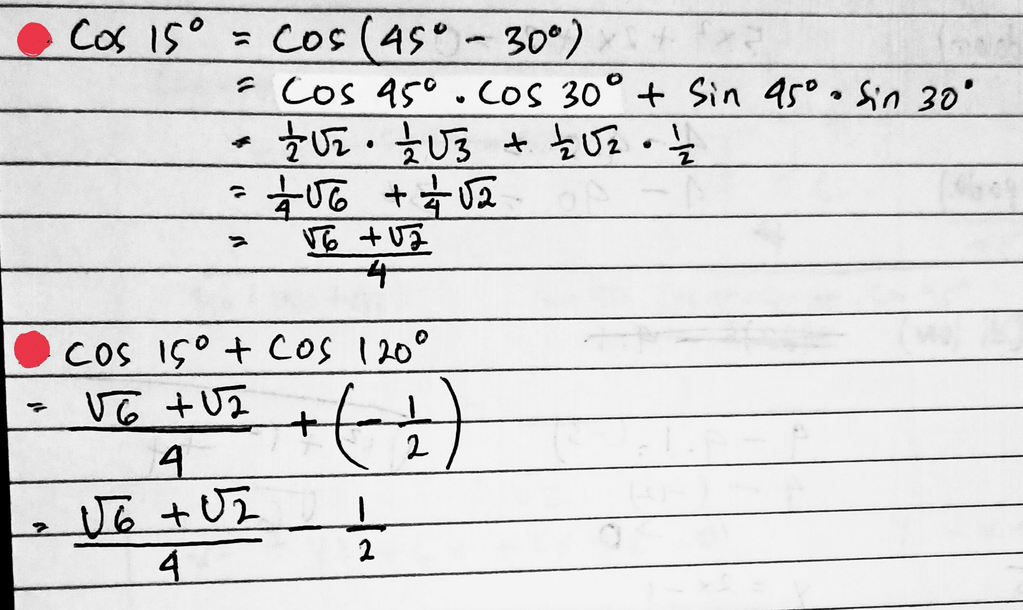 cos 15° = cos (45° - 30°)
= cos 45° . cos 30° + sin 45° . sin 30°
= 1/2 √2 . 1/2 √3 + 1/2 √2 . 1/2
= 1/4 √6 + 1/4 √2
= (√6 + √2)/4
cos 15° + cos 120°
= (√6 + √2)/4 + (- 1/2)
= (√6 + √2)/4 - 1/2